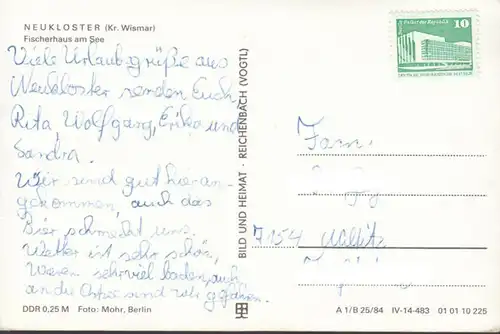 NEUKLOSTER (Kr. Wismar)
Fischerhaus am See
Viele Urlaubsgrüße aus
Neukloster senden Euch
Rita, Wolfgang, Erika und
Sandra.
Wir sind gut hieran-
gekommen, auch das
Bier schmeckt uns.
Wetter ist sehr schön,
Waren sehr viel baden, auch
an die Ostsee sind wir gefahren.
DDR 0,25 M Foto: Mohr, Berlin
BILD UND HEIMAT · REICHENBACH (VOGTL)
Palast der Republik
10
DEUTSCHE DEMOKRATISCHE REPUBLIK
Fam.
7154
A 1/B 25/84 IV-14-483 01 01 10 225